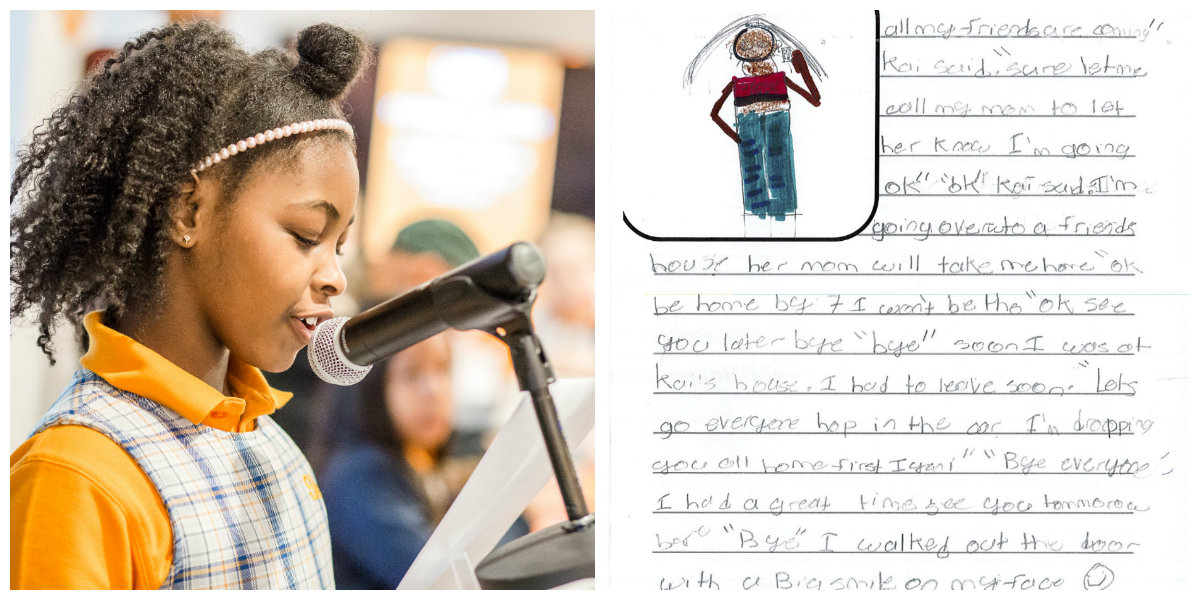 all my friends are coming"
Kai said. "sure let me
call my mom to let
her know I'm going
ok" "ok" Kai said. I'm
going over to a friends
house her mom will take me home "ok
be home by 7 I won't be tho "ok see
you later bye "bye" soon I was at
Kai's house. I had to leave soon. "Lets
go everyone hop in the car I'm dropping
you all home first Iyani" "Bye everyone
I had a great time see you tommorow
"Bye" I walked out the door
with a Big smile on my face